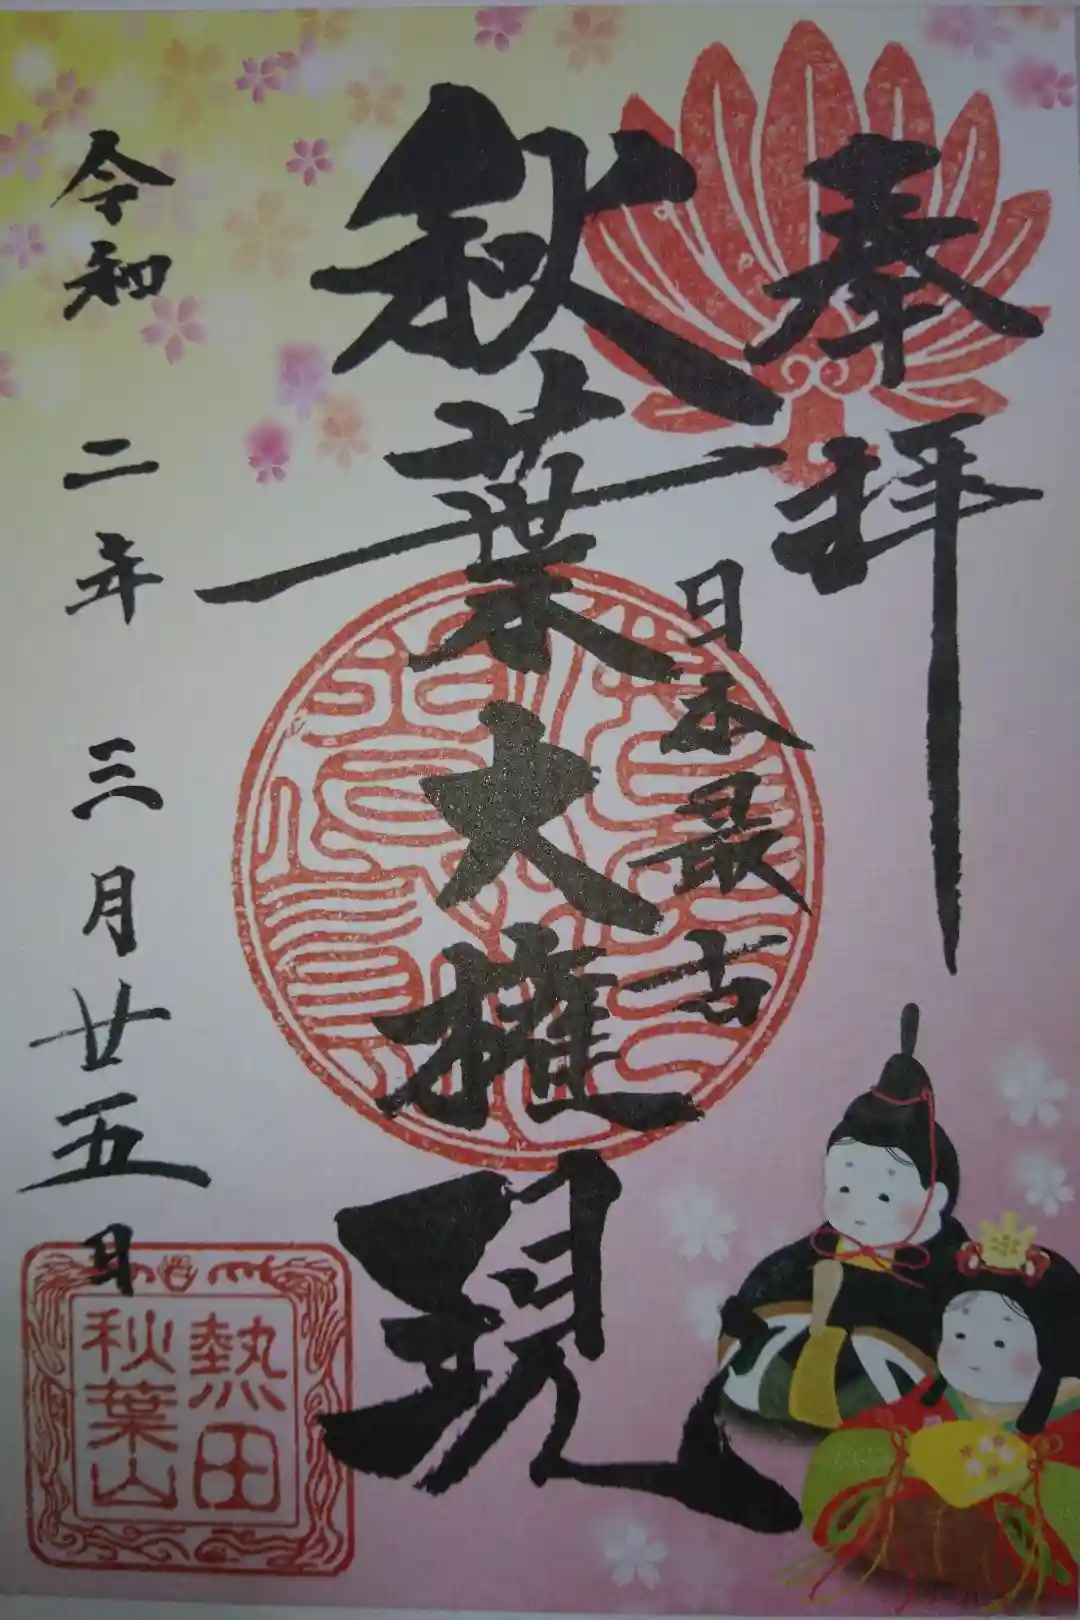 奉拝
日本最古
秋葉大権現
令和二年三月廿五日
熱田
秋葉山